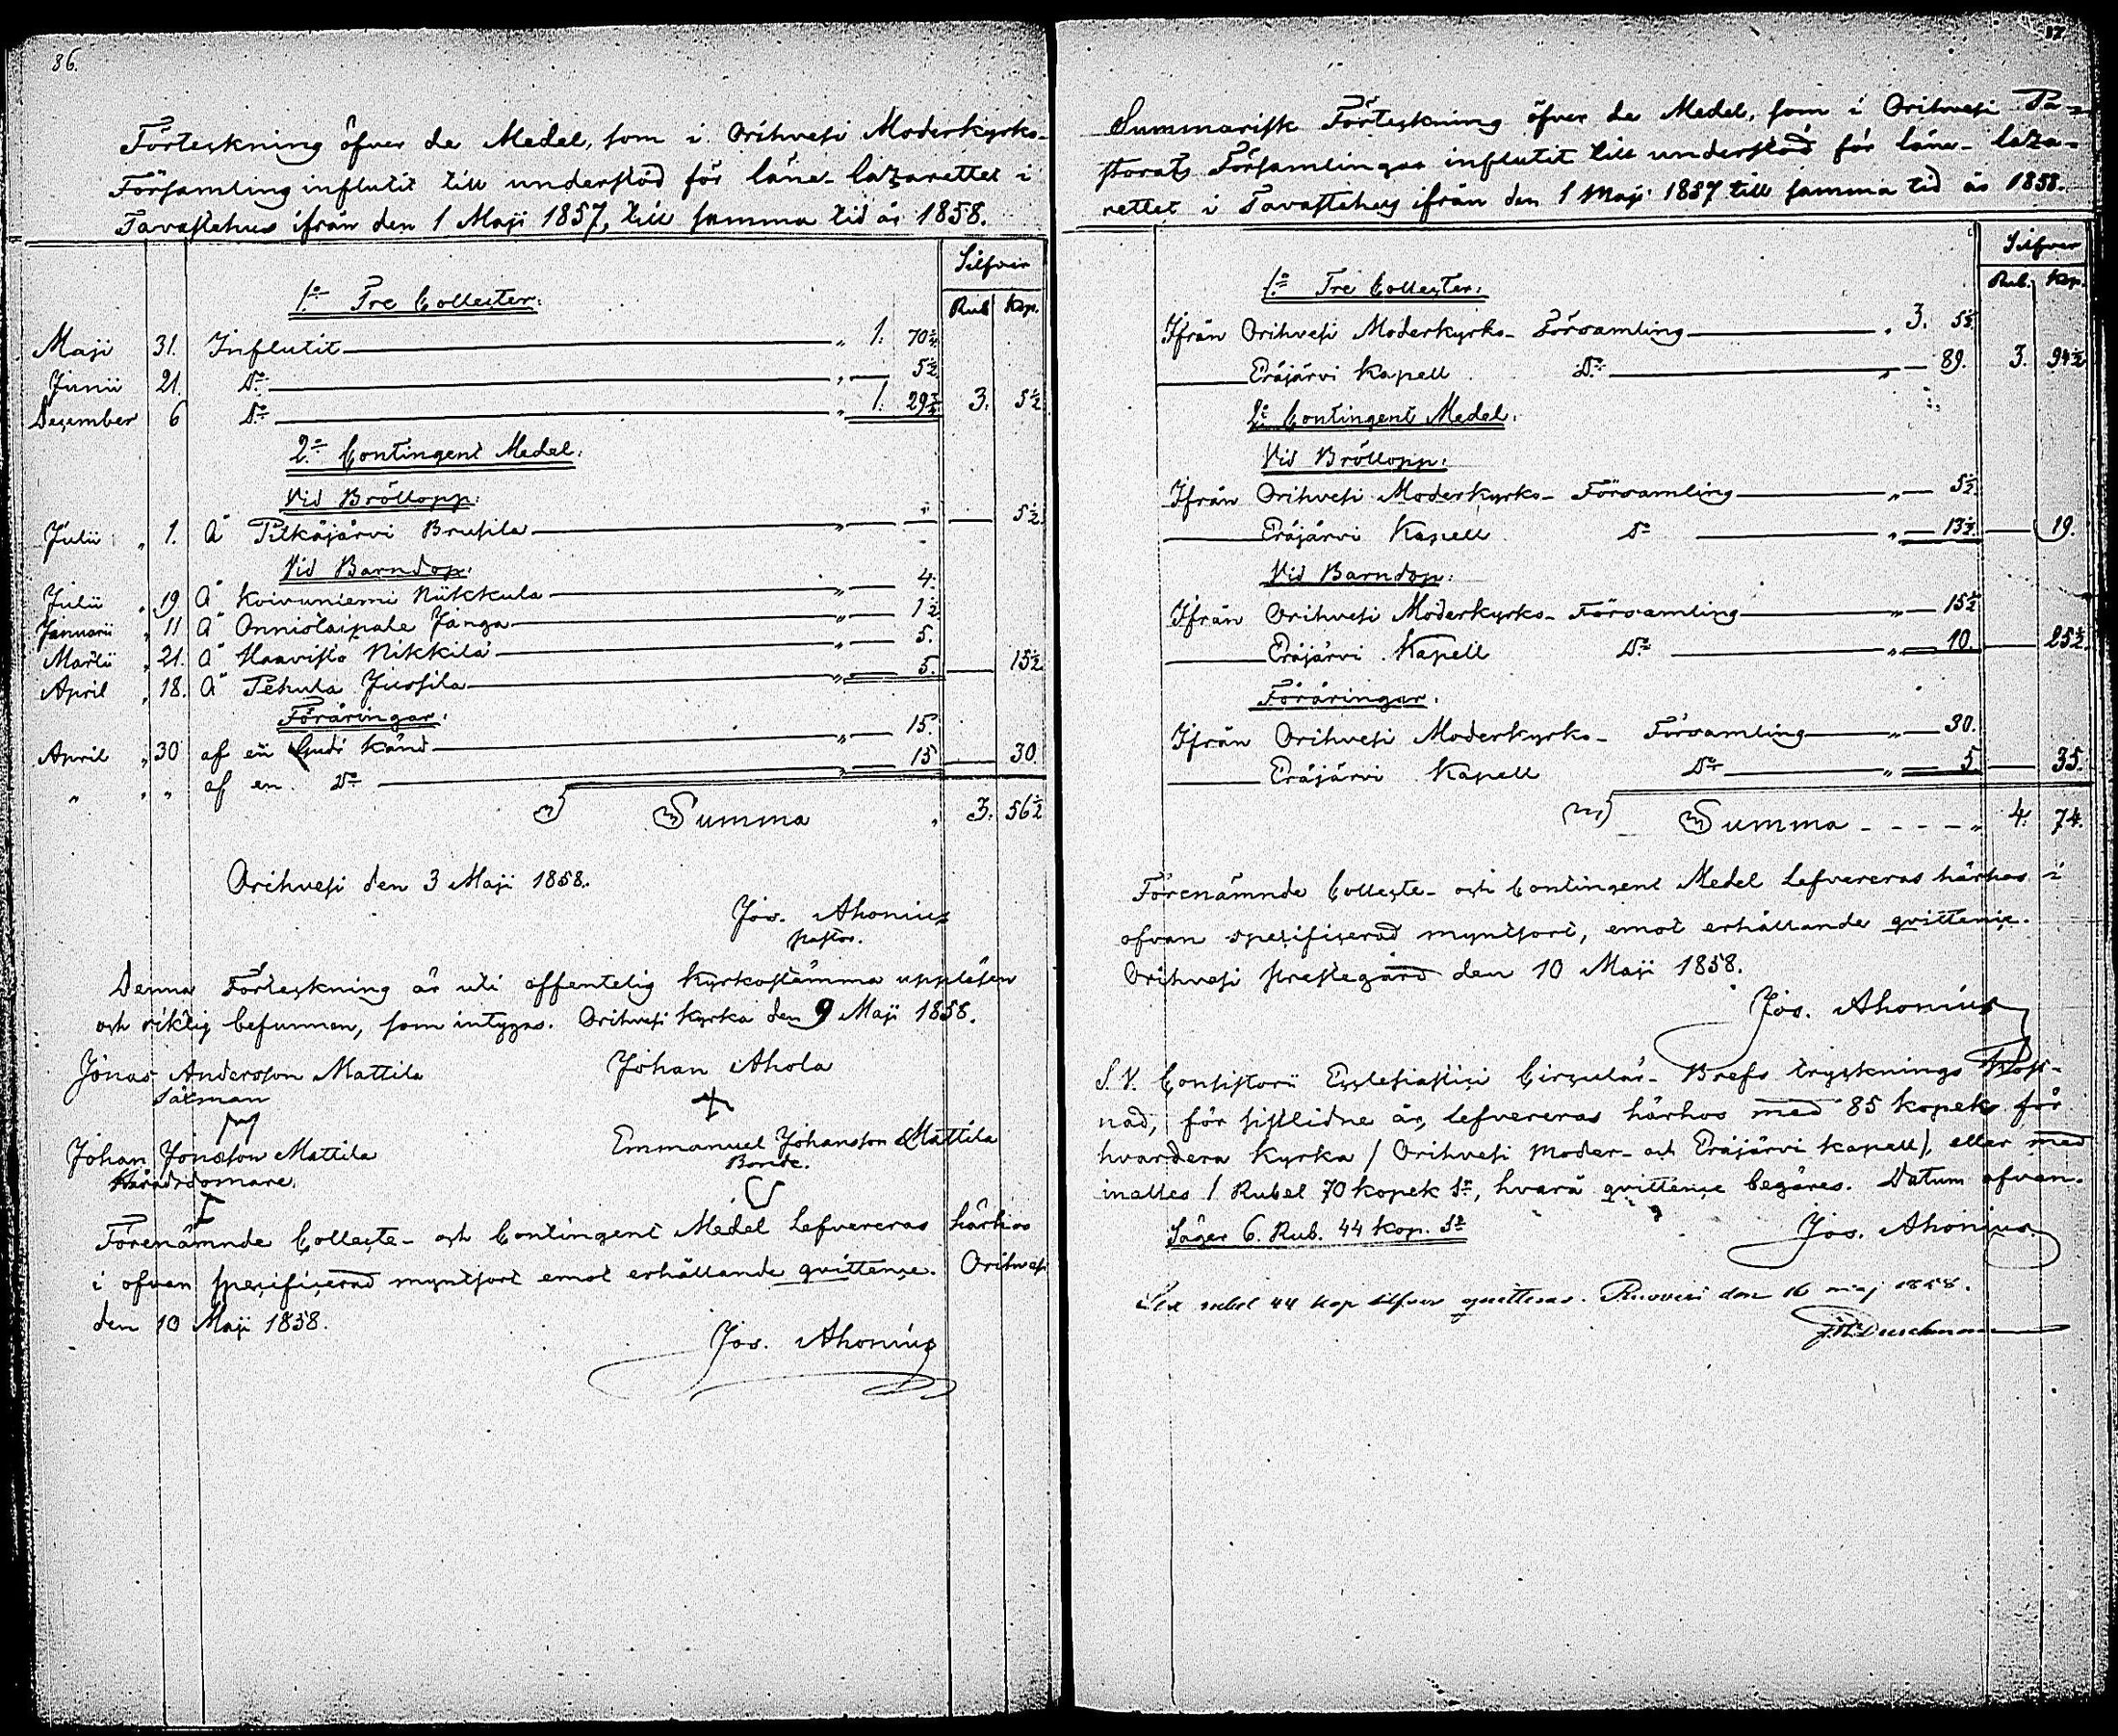 86.
Förteckning öfver de Medel, som i Orihvesi Moderkyrko-
Församling influtit till understöd för läne-lazarettet i
Tavastehus ifrån den 1 Maji 1857, till samma tid år 1858.
Silfver
Rub. Kop.
1:o Tre Collecter:
Maji 31. Influtit " 1. 70 1/4
Junii 21. D:o " — 5 1/2
December 6 D:o " 1. 29 3/4 3. 5 1/2
2:o Contingent Medel:
Vid Bröllopp:
Julii " 1. Å Pitkäjärvi Brusila " — " — 5 1/2
Vid Barndop:
Julii " 19 Å Koivuniemi Nikkula " — 4.
Januarii " 11 Å Onnistaipale Jånga " — 1 1/2
Martii " 21. Å Haavisto Nikkilä " — 5.
April " 18. Å Pehula Jussila " — 5. — 15 1/2
Föräringar:
April " 30 af en Gudi känd " — 15.
" " " af en D:o " — 15 — 30.
Summa " 3. 56 1/2
Orihvesi den 3 Maji 1858.
Jos. Ahonius
pastor.
Denna Förteckning är uti offentelig Kyrkostämma uppläsen
och riktig befunnen, som intygas. Orihvesi Kyrka den 9 Maji 1858.
Jonas Andersson Mattila Johan Ahola
Johan Jonsson Mattila Emmanuel Johansson Mattila
Häradsdomare. Bonde.
Förenämnde Collecte- och Contingent Medel lefvereras härhos
i ofvan specificerad myntsort emot erhållande qvittence. Orihvesi
den 10 Maji 1858.
Jos. Ahonius
87
Summarisk Förteckning öfver de Medel, som i Orihvesi Pa-
storats Församlingar influtit till understöd för läne-laza-
rettet i Tavastehus ifrån den 1 Maji 1857 till samma tid år 1858.
Silfver
Rub. Kop.
1:o Tre Collecter:
Ifrån Orihvesi Moderkyrko-Församling " 3. 5 1/2
Eräjärvi Kapell D:o " — 89. 3. 94 1/2
2:o Contingent Medel:
Vid Bröllopp:
Ifrån Orihvesi Moderkyrko-Församling " — 5 1/2
Eräjärvi Kapell D:o " — 13 1/2 — 19.
Vid Barndop:
Ifrån Orihvesi Moderkyrko-Församling " — 15 1/2
Eräjärvi Kapell D:o " — 10. — 25 1/2
Föräringar:
Ifrån Orihvesi Moderkyrko-Församling " — 30.
Eräjärvi Kapell D:o " — 5 — 35.
Summa - - - - " 4. 74.
Förenämnde Collecte- och Contingent Medel lefvereras härhos i
ofvan specificerad myntsort, emot erhållande qvittence.
Orihvesi prestegård den 10 Maji 1858.
Jos. Ahonius
S. V. Consistorii Ecclesiastici Circulär-Brefs trycknings kost-
nad, för sistlidne år, lefvereras härhos med 85 kopek för
hvardera Kyrka / Orihvesi Moder- och Eräjärvi kapell /, eller med
inalles 1 Rubel 70 kopek S:r, hvarå qvittence begäres. Datum ofvan.
Säger 6. Rub. 44 kop. S:r
Jos. Ahonius
Sex rubel 44 kop silfver quitteras. Ruovesi den 16 maj 1858.